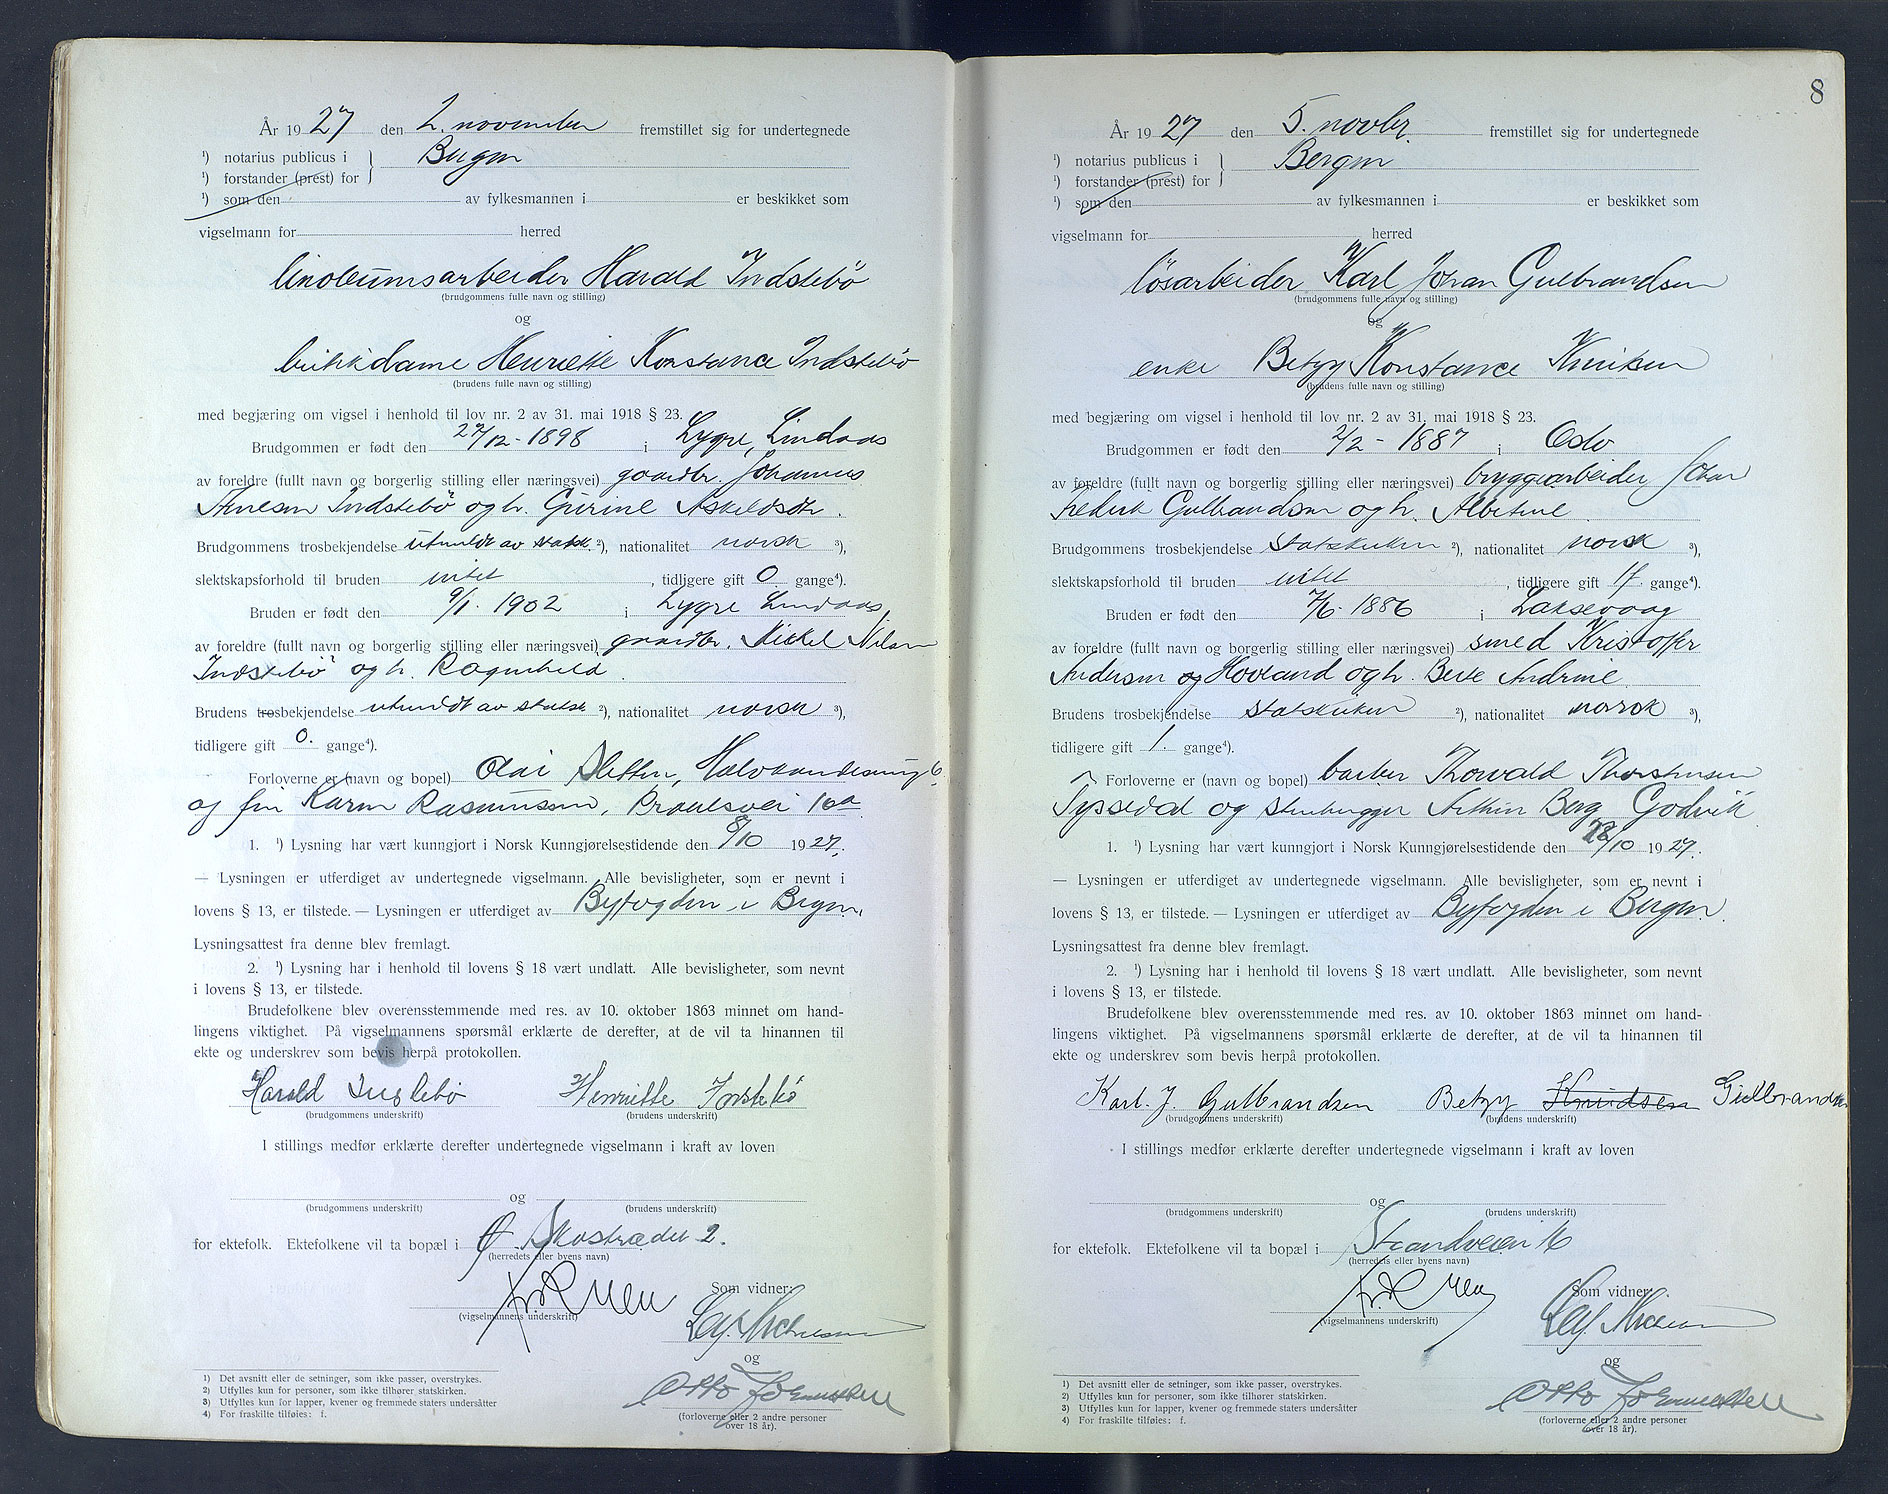 År 1927 den 2. november fremstillet sig for undertegnede
¹) notarius publicus i } Bergen
¹) forstander (prest) for
¹) som den av fylkesmannen i er beskikket som
vigselmann for herred
linoleumsarbeider Harald Indstebö
(brudgommens fulle navn og stilling)
og
butikkdame Henriette Konstance Indstebö
(brudens fulle navn og stilling)
med begjæring om vigsel i henhold til lov nr. 2 av 31. mai 1918 § 23.
Brudgommen er født den 27/12 - 1898 i Lygre, Lindaas
av foreldre (fullt navn og borgerlig stilling eller næringsvei) gaardbr. Johannes
Arnesen Indstebö og h. Gurine Askeldsdtr.
Brudgommens trosbekjendelse utmeldt av statsk. ²), nationalitet norsk ³),
slektskapsforhold til bruden intet, tidligere gift 0 gange⁴).
Bruden er født den 9/1. 1902 i Lygre Lindaas,
av foreldre (fullt navn og borgerlig stilling eller næringsvei) gaardbr. Mikkel Nilsen
Indstebö og h. Ragnhild.
Brudens trosbekjendelse utmeldt av statsk ²), nationalitet norsk ³),
tidligere gift 0. gange⁴).
Forloverne er (navn og bopel) Olai Sletten, 6
og frk Karen Rasmussen, 10a
1. ¹) Lysning har vært kunngjort i Norsk Kunngjørelsestidende den 8/10 1927.
— Lysningen er utferdiget av undertegnede vigselmann. Alle bevisligheter, som er nevnt i
lovens § 13, er tilstede. — Lysningen er utferdiget av Byfogden i Bergen.
Lysningsattest fra denne blev fremlagt.
2. ¹) Lysning har i henhold til lovens § 18 vært undlatt. Alle bevisligheter, som nevnt
i lovens § 13, er tilstede.
Brudefolkene blev overensstemmende med res. av 10. oktober 1863 minnet om hand-
lingens viktighet. På vigselmannens spørsmål erklærte de derefter, at de vil ta hinannen til
ekte og underskrev som bevis herpå protokollen.
Harald Indstebö Henriette Indstebö
(brudgommens underskrift) (brudens underskrift)
I stillings medfør erklærte derefter undertegnede vigselmann i kraft av loven
og
(brudgommens underskrift) (brudens underskrift)
for ektefolk. Ektefolkene vil ta bopæl i Ø. Skostrædet 2.
(herredets eller byens navn)
Som vidner:
(vigselmannens underskrift)
og
Otto Johannessen
(forloverne eller 2 andre personer
over 18 år).
1) Det avsnitt eller de setninger, som ikke passer, overstrykes.
2) Utfylles kun for personer, som ikke tilhører statskirken.
3) Utfylles kun for lapper, kvener og fremmede staters undersåtter
4) For fraskilte tilføies: f.
8
År 1927 den 5. novbr. fremstillet sig for undertegnede
¹) notarius publicus i } Bergen
¹) forstander (prest) for
¹) som den av fylkesmannen i er beskikket som
vigselmann for herred
løsarbeider Karl Johan Gulbrandsen
(brudgommens fulle navn og stilling)
og
enke Betzy Konstance Knudsen
(brudens fulle navn og stilling)
med begjæring om vigsel i henhold til lov nr. 2 av 31. mai 1918 § 23.
Brudgommen er født den 2/2 - 1887 i Oslo
av foreldre (fullt navn og borgerlig stilling eller næringsvei) bryggearbeider Johan
Fredrik Gulbrandsen og h. Albertine.
Brudgommens trosbekjendelse statskirken ²), nationalitet norsk ³),
slektskapsforhold til bruden intet, tidligere gift 1f gange⁴).
Bruden er født den 7/6. 1886 i Laksevaag
av foreldre (fullt navn og borgerlig stilling eller næringsvei) smed Kristoffer
Andersen Hovland og h. Berte Andrine.
Brudens trosbekjendelse statskirken ²), nationalitet norsk ³),
tidligere gift 1. gange⁴).
Forloverne er (navn og bopel) barber Thorvald Thorstensen
Tyssedal og stenhugger Arthur Berg, Godvik
1. ¹) Lysning har vært kunngjort i Norsk Kunngjørelsestidende den /10 1927.
— Lysningen er utferdiget av undertegnede vigselmann. Alle bevisligheter, som er nevnt i
lovens § 13, er tilstede. — Lysningen er utferdiget av Byfogden i Bergen.
Lysningsattest fra denne blev fremlagt.
2. ¹) Lysning har i henhold til lovens § 18 vært undlatt. Alle bevisligheter, som nevnt
i lovens § 13, er tilstede.
Brudefolkene blev overensstemmende med res. av 10. oktober 1863 minnet om hand-
lingens viktighet. På vigselmannens spørsmål erklærte de derefter, at de vil ta hinannen til
ekte og underskrev som bevis herpå protokollen.
Karl. J. Gulbrandsen Betzy Knudsen Gulbrandsen
(brudgommens underskrift) (brudens underskrift)
I stillings medfør erklærte derefter undertegnede vigselmann i kraft av loven
og
(brudgommens underskrift) (brudens underskrift)
for ektefolk. Ektefolkene vil ta bopæl i Strandveien 16
(herredets eller byens navn)
Som vidner:
(vigselmannens underskrift)
og
Otto Johannessen
(forloverne eller 2 andre personer
over 18 år).
1) Det avsnitt eller de setninger, som ikke passer, overstrykes.
2) Utfylles kun for personer, som ikke tilhører statskirken.
3) Utfylles kun for lapper, kvener og fremmede staters undersåtter
4) For fraskilte tilføies: f.